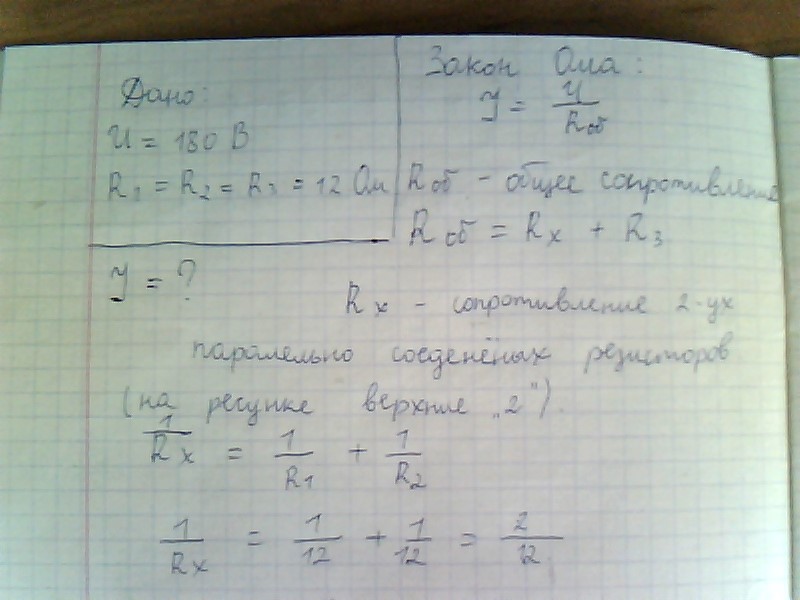 Дано:
U = 180 В
R1 = R2 = R3 = 12 Ом
J = ?
Закон Ома:
J = U / Rоб
Rоб - общее сопротивление
Rоб = Rx + R3
Rx - сопротивление 2-ух
паралельно соеденёных резисторов
(на ресунке верхние „2").
1/Rx = 1/R1 + 1/R2
1/Rx = 1/12 + 1/12 = 2/12